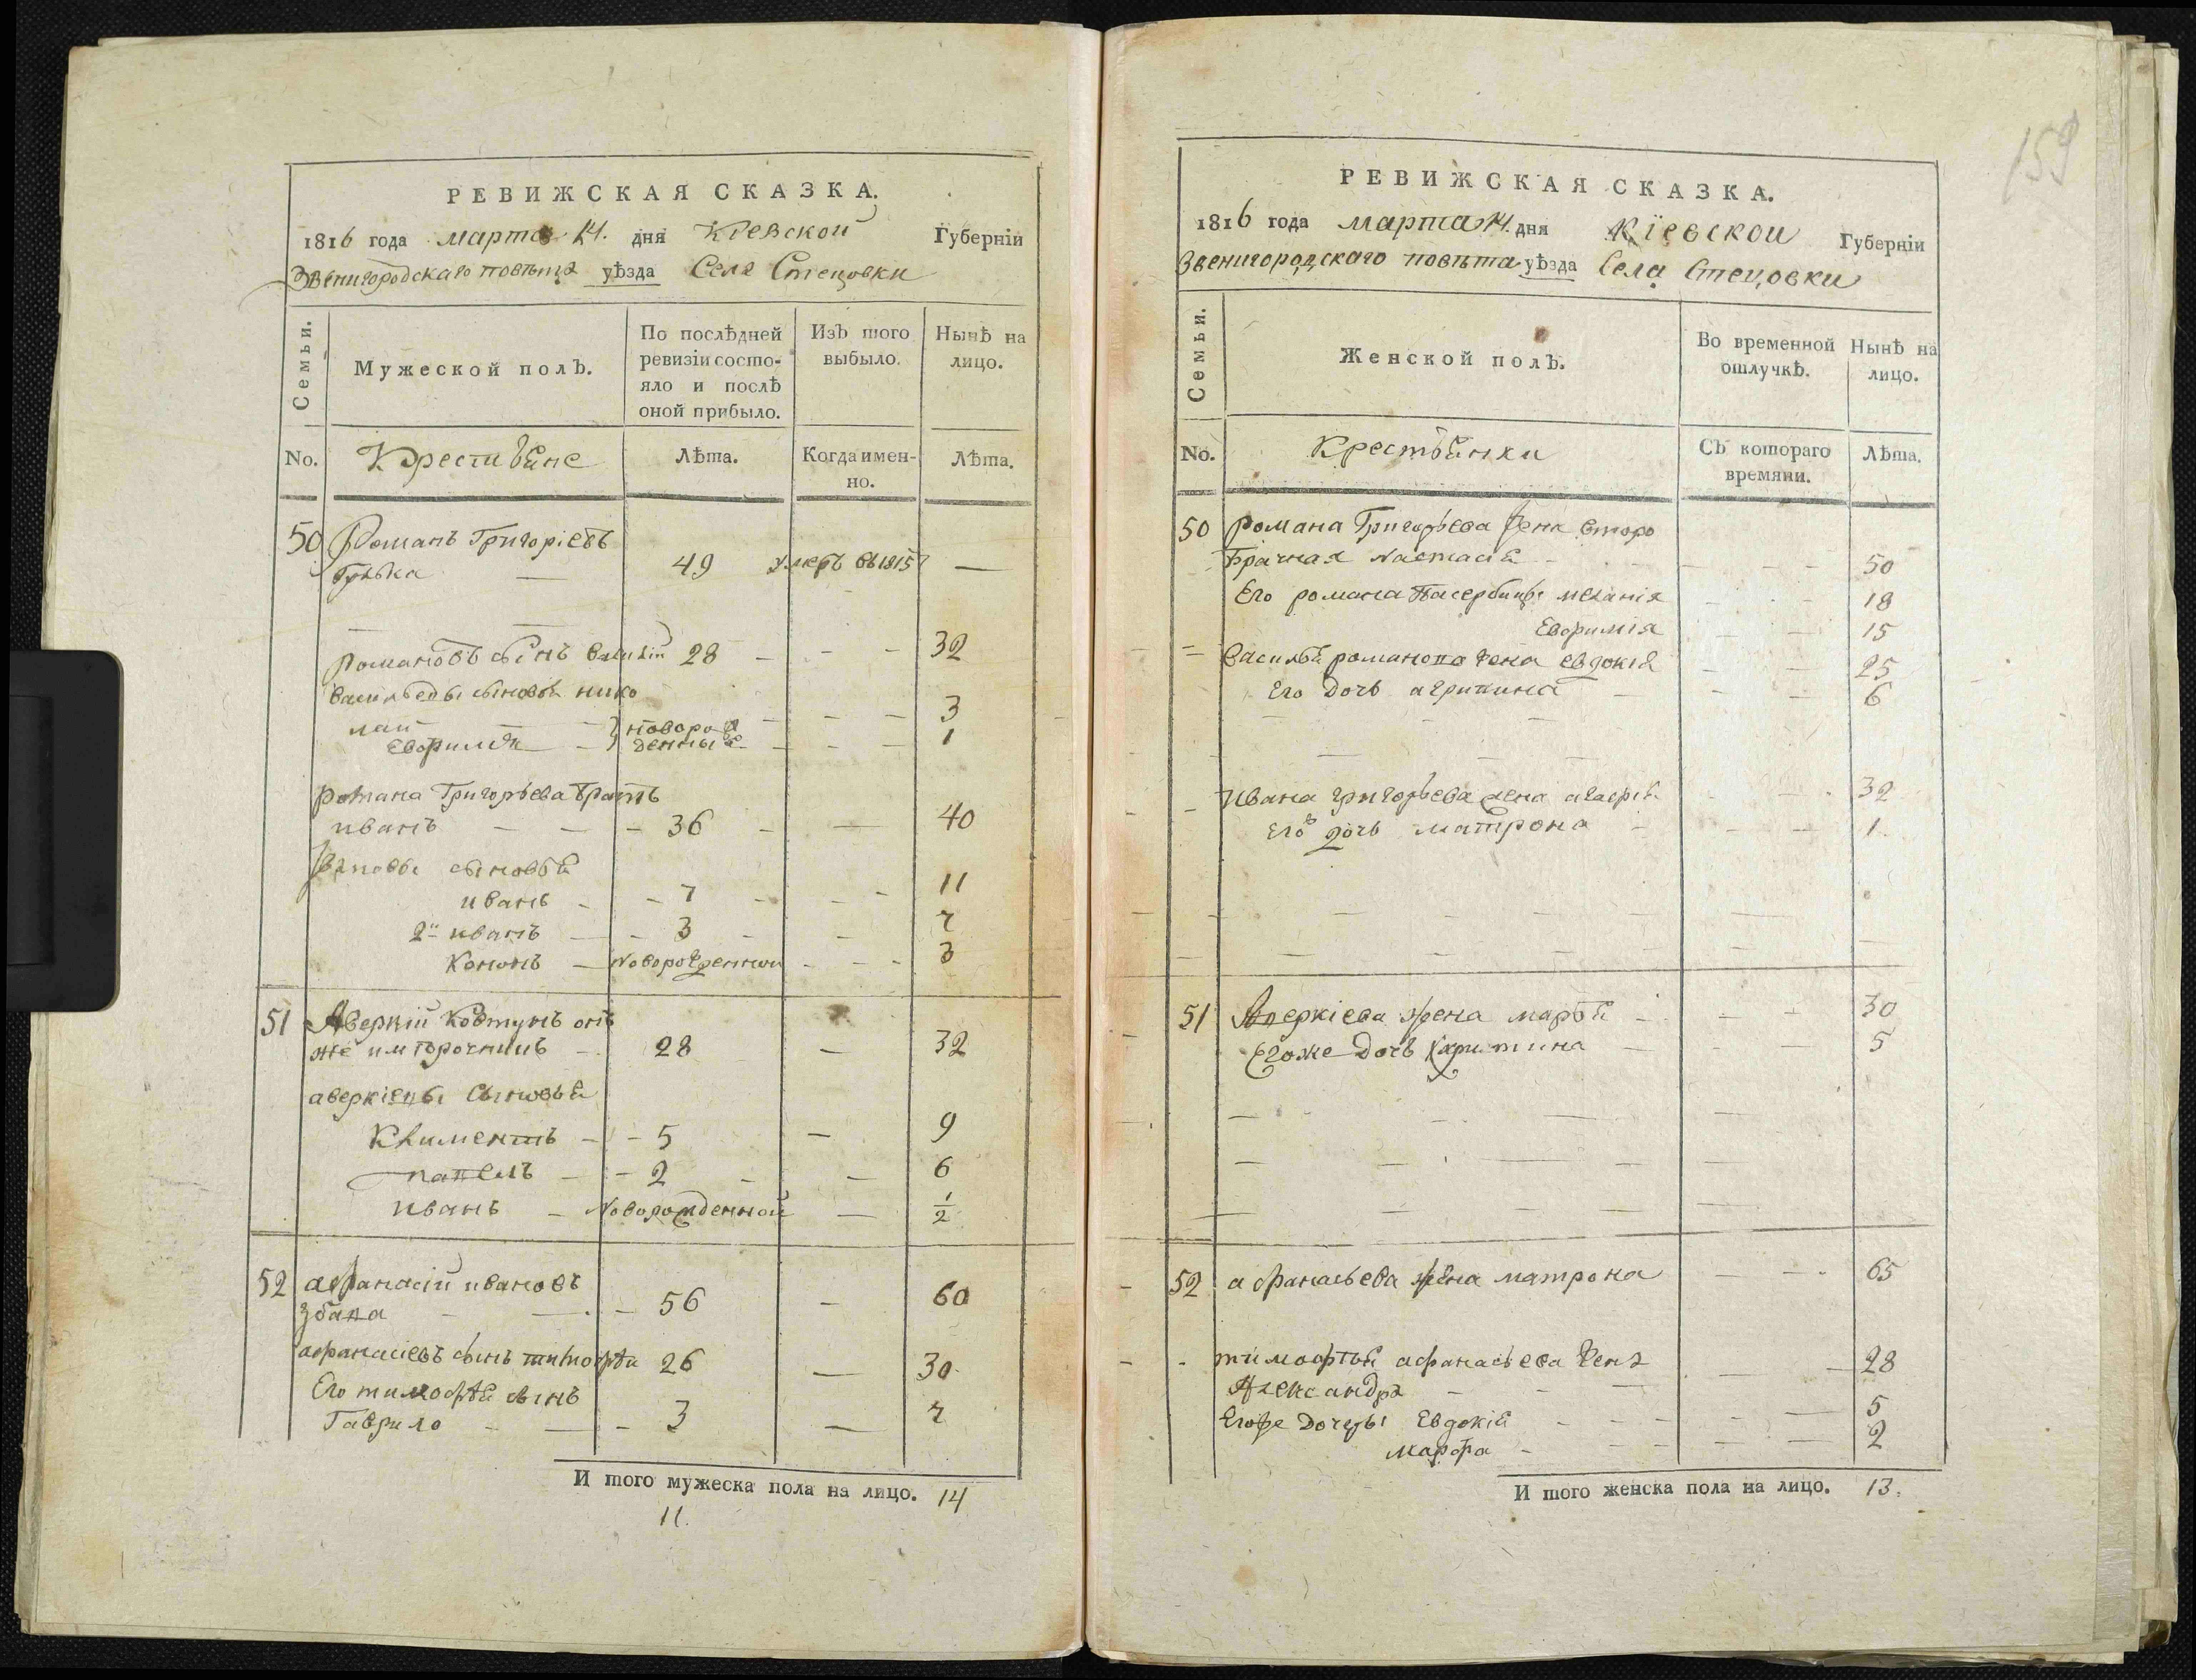 РЕВИЖСКАЯ СКАЗКА.
1816 года марта 14. дня Кіевской Губерніи
Звенигородскаго повѣта уѣзда Села Стецовки
Семьи.
Мужеской полъ.
По послѣдней ревизіи состо-яло и послѣ оной прибыло.
Изъ того выбыло.
Нынѣ на лицо.
No. Крестьяне Лѣта. Когда имен-но. Лѣта.
50 Романъ Григоріевъ
Грѣвка — 49 умеръ въ 1815 —
Романовъ сынъ Василій 28 - - - 32
Васильевы сыновья нико
лай — новорож - - - 3
Евфимія - денные - - - 1
Романа Григорьева братъ
иванъ — — - 36 - — 40
Ивановы сыновья
иванъ - - 7 - - - 11
2й иванъ — - 3 - - 7
Кононъ — Новорожденной - - - 3
51 Аверкій Ковтунъ онъ
же - 28 — 32
аверкіевы Сыновья
Климентъ - - 5 — 9
павелъ - - 2 - — 6
иванъ - Новорожденной — 1/2
52 афанасій ивановъ
Збана - —. - 56 — 60
афанасіевъ сынъ тимофѣй 26 — 30
Его тимофѣя сынъ
Гаврило - — - 3 — 7
И того мужеска пола на лицо. 14
11.
159
РЕВИЖСКАЯ СКАЗКА.
1816 года марта 14. дня Кіевской Губерніи
Звенигородскаго повѣта уѣзда Села Стецовки
Семьи.
Женской полъ.
Во временной отлучкѣ.
Нынѣ на лицо.
No. Крестьянки Съ котораго времяни. Лѣта.
50 Романа Григорьева жена второ
брачная Настасія - - - 50
Его романа пасербицы меланія - - 18
Евфимія - — 15
Василья романова жена евдокія - — 25
Его дочь агрипина — - - 6
Ивана григорьева жена - - 32
Его дочь матрона - - — 1.
51 Аверкіева жена марья - - - 30
Егоже дочь Христина — - — 5
52 афанасьева жена матрона — - - 65
тимофѣя афанасьева жена — — 28
Александра - - —
Егоже дочеры Евдокія - - - - — 5
марфа - - - - — 2
И того женска пола на лицо. 13.